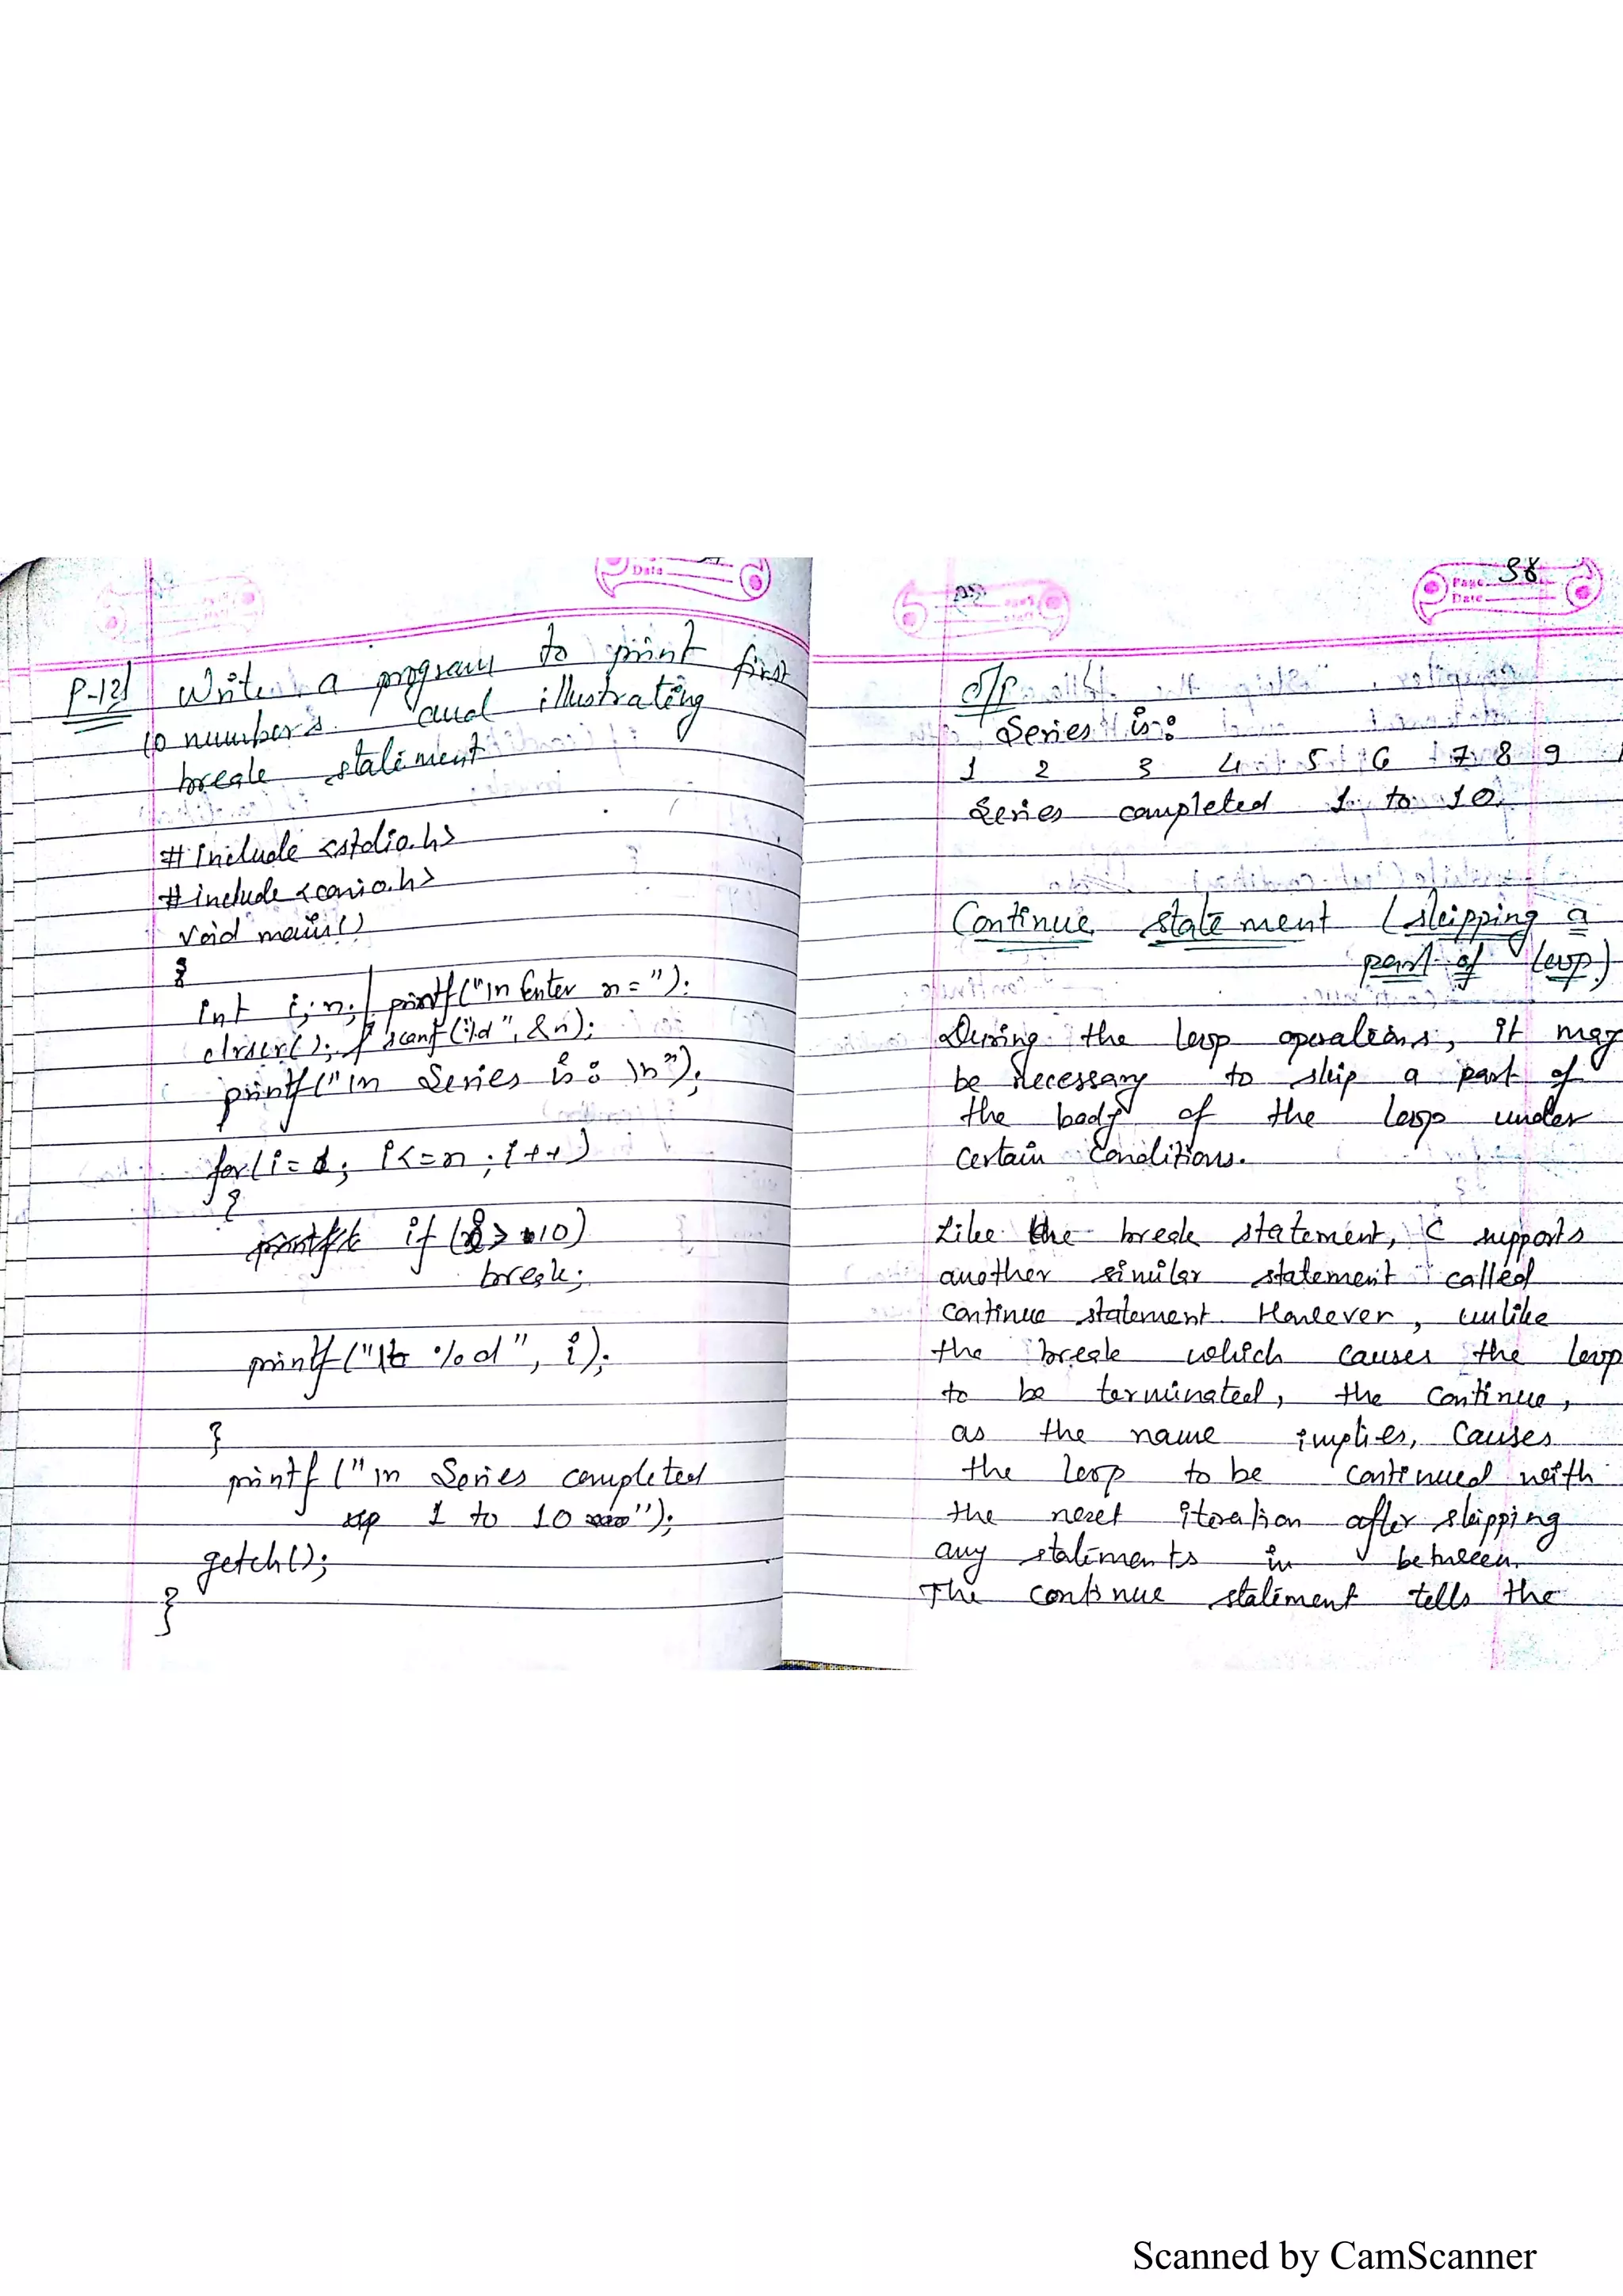 P-12] Write a program to print first
10 numbers. and illustrating
break statement
#include <stdio.h>
#include <conio.h>
void main()
{
int i, n; printf("\n Enter n = ");
clrscr(); scanf("%d", &n);
printf("\n Series is: \n");
for(i=1; i<=n; i++)
{
if (i > 10)
break;
printf("\t %d", i);
}
printf("\n Series completed
1 to 10");
getch();
}
Page 38
Date
O/P
Series is:
1 2 3 4 5 6 7 8 9
Series completed 1 to 10.
Continue statement (skipping a
part of loop)
During the loop operations, it may
be necessary to skip a part of
the body of the loop under
certain conditions.
Like the break statement, C supports
another similar statement called
continue statement. However, unlike
the break which causes the loop
to be terminated, the continue,
as the name implies, causes
the loop to be continued with
the next iteration after skipping
any statements in between.
The continue statement tells the
Scanned by CamScanner